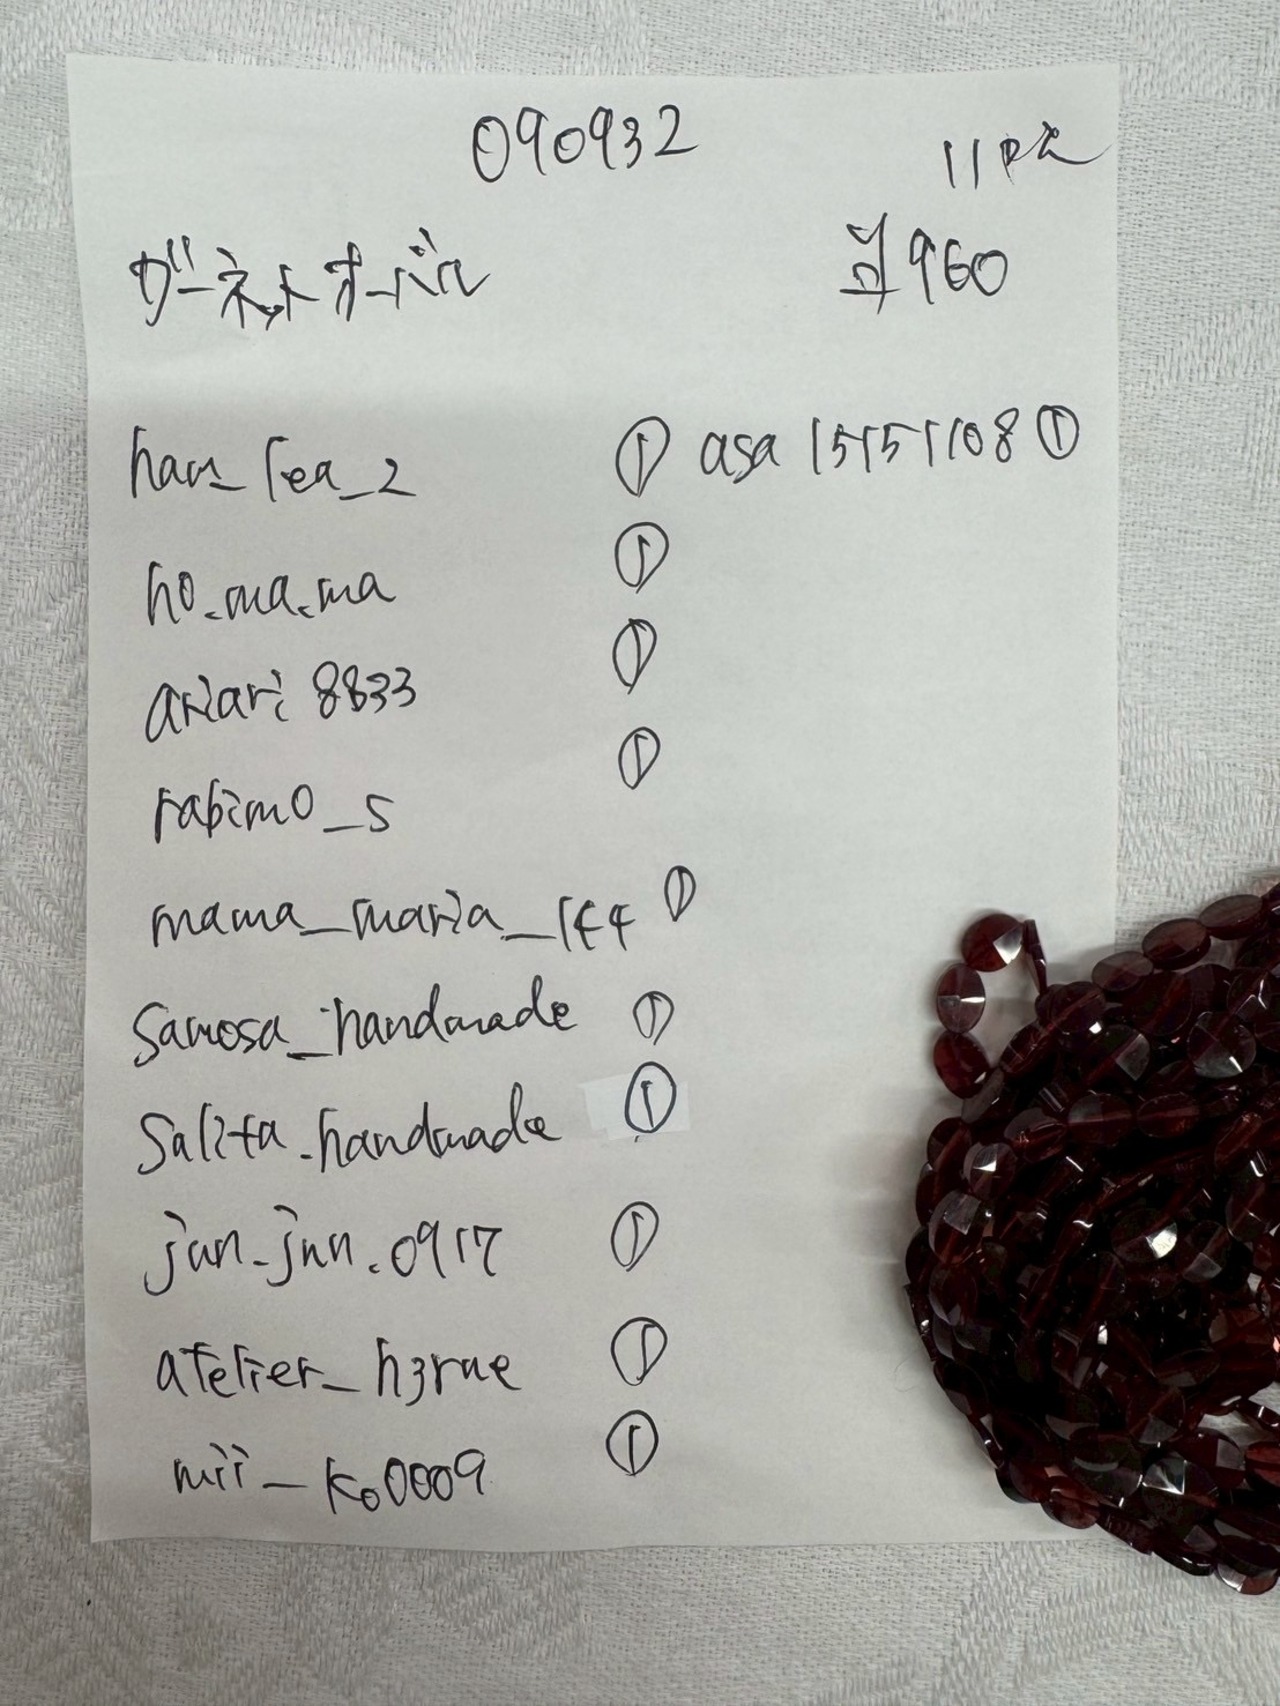 090932
11pc
ガーネットオーバル
¥960
haru_lea_2 ① asa 15151108 ①
ho.ma.ma ①
ariari 8833 ①
rabimo_s ①
mama_maria_144 ①
Samosa_handmade ①
Salita.handmade ①
jun-jun.0917 ①
atelier_h3rue ①
mii_ko0009 ①